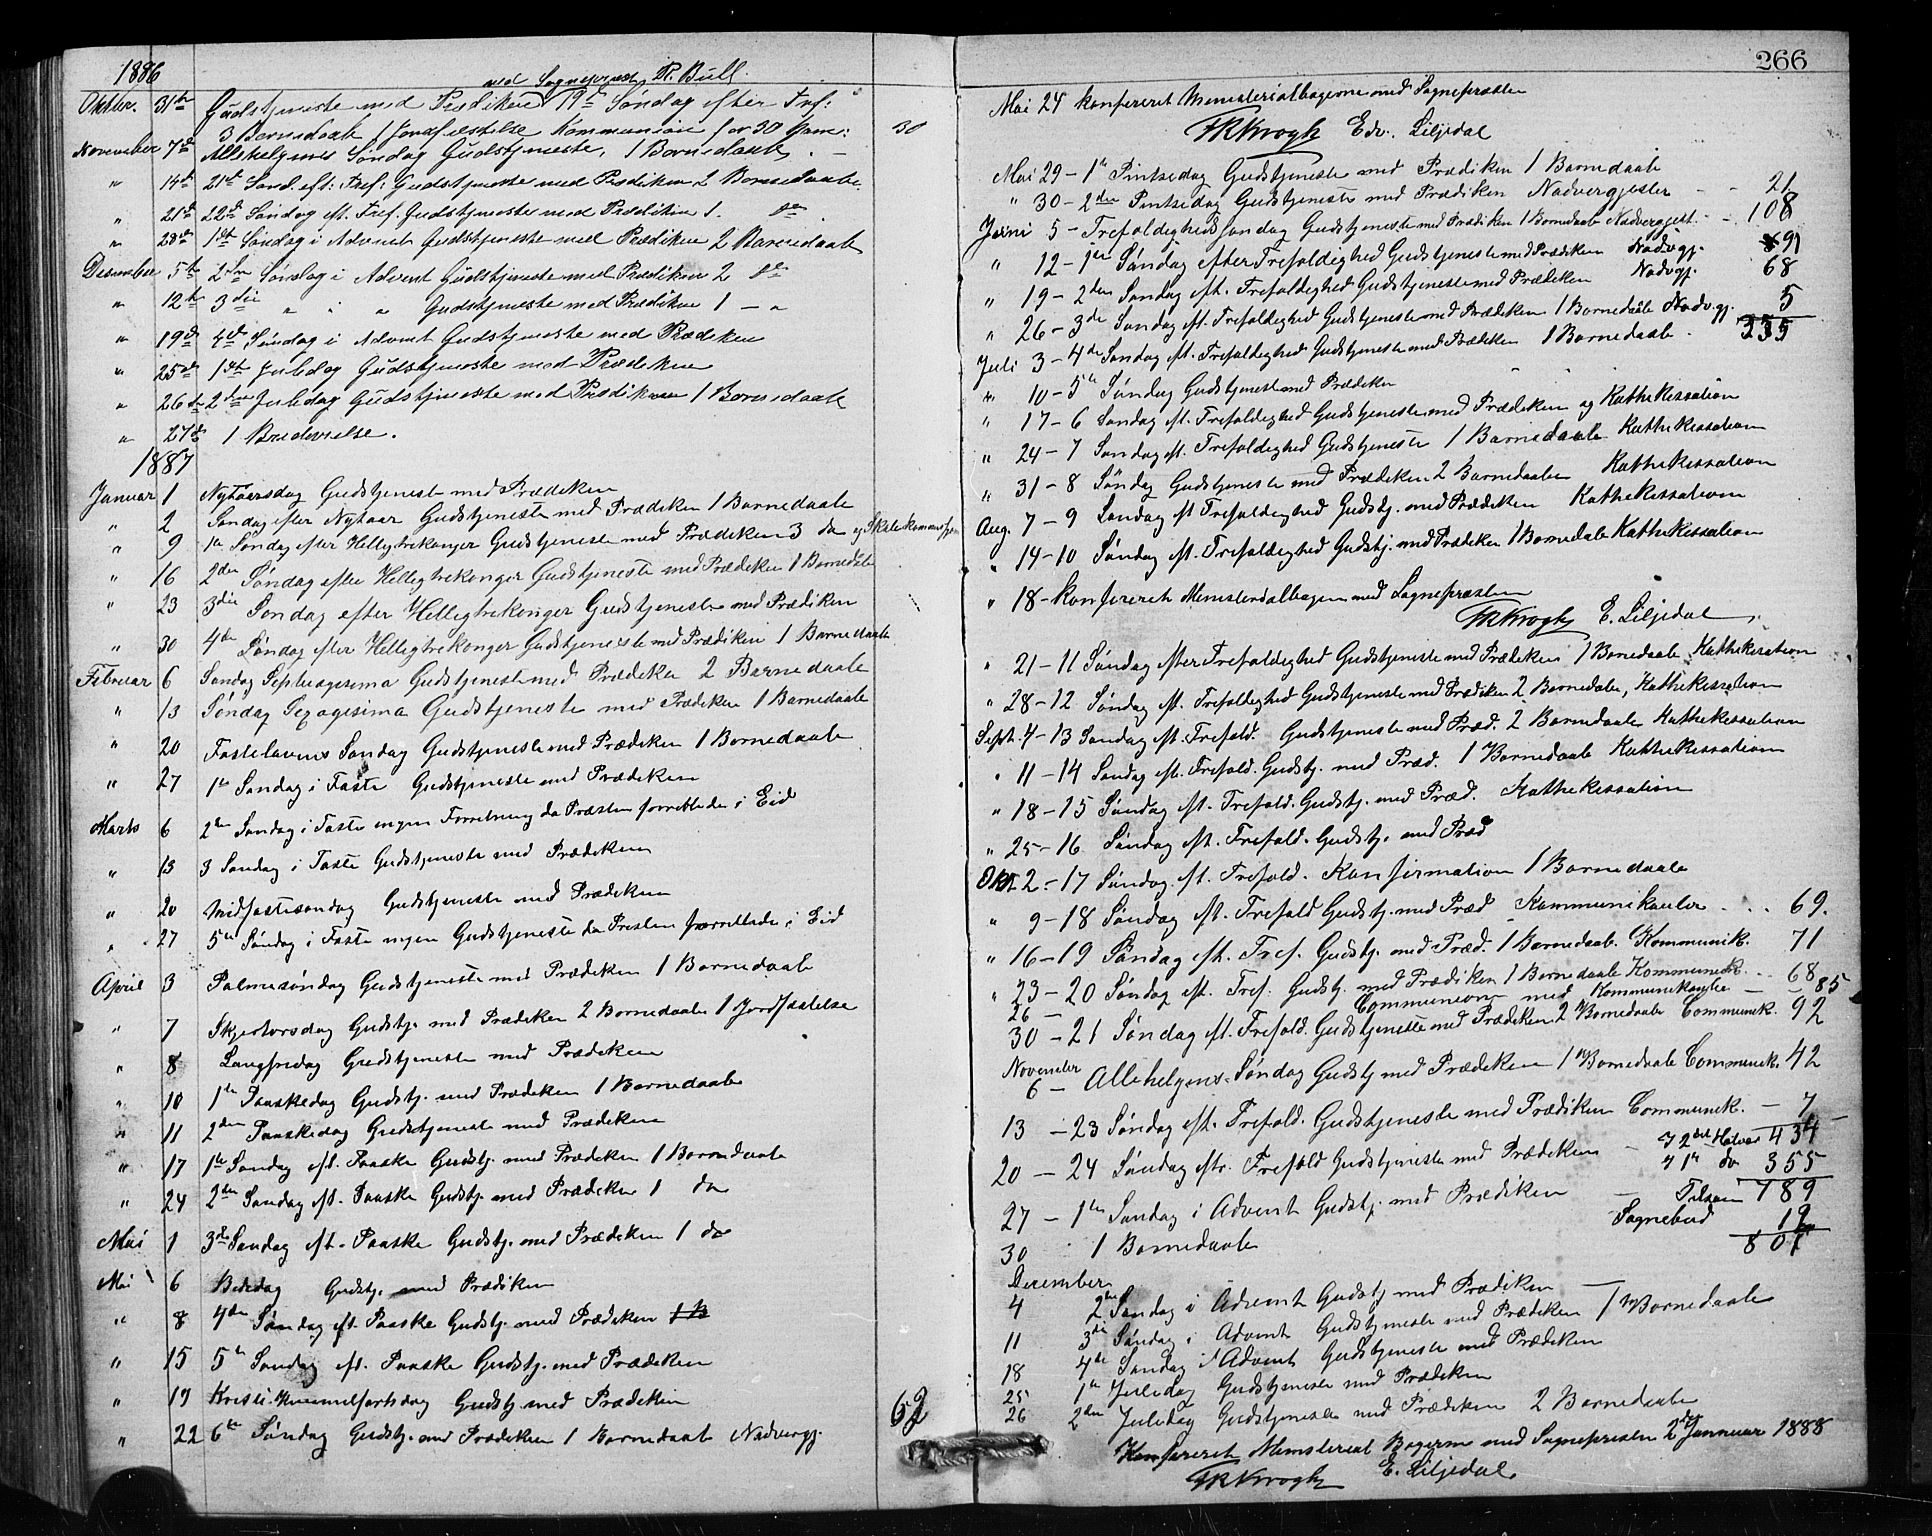 1886
ved Sognepræst P. Bull.
Oktbr. 31te Gudstjeneste med Prædiken 19de Søndag efter Tref:
3 Barnedaab 1 Jordfæstelse Kommunion for 30 Pam: 30
November 7de Allehelgens Søndag Gudstjeneste, 1 Barnedaab. —
" 14de 21de Sønd. eft: Tref: Gudstjeneste med Prædiken 2 Barnedaab.
" 21de 22de Søndag eft. Tref. Gudstjeneste med Prædiken 1. do
" 28de 1ste Søndag i Advent Gudstjeneste med Prædiken 2 Barnedaab
Desember 5te 2den Søndag i Advent Gudstjeneste med Prædiken 2 do
" 12te 3die " " " Gudstjeneste med Prædiken 1 — "
" 19de 4de Søndag i Advent Gudstjeneste med Prædiken
" 25de 1ste Juledag Gudstjeneste med Prædiken
" 26de 2den Juledag Gudstjeneste med Prædiken 1 Barnedaab
" 27de 1 Brudevielse.
1887
Januar 1 Nytaarsdag Gudstjeneste med Prædiken
" 2 Søndag efter Nytaar Gudstjeneste med Prædiken 1 Barnedaab
" 9 1te Søndag efter Helligtrekonger Gudstjeneste med Prædiken 3 do
" 16 2den Søndag efter Helligtrekonger Gudstjeneste med Prædiken 1 Barnedab
" 23 3die Søndag efter Helligtrekonger Gudstjeneste med Prædiken
" 30 4de Søndag efter Helligtrekonger Gudstjeneste med Prædiken 1 Barnedaab
Februar 6 Søndag Septuagesima Gudstjeneste med Prædiken 2 Barnedaab
" 13 Søndag Sexagesima Gudstjeneste med Prædiken 1 Barnedaab
" 20 Fastelavens Søndag Gudstjeneste med Prædiken 1 Barnedaab
" 27 1te Søndag i Faste Gudstjeneste med Prædiken
Marts 6 2den Søndag i Faste ingen Forretning da Præsten forrettede i Eid
" 13 3 Søndag i Faste Gudstjeneste med Prædiken
" 20 Midfastesøndag Gudstjeneste med Prædiken
" 27 5te Søndag i Faste ingen Gudstjeneste da Presten forrettede i Eid
April 3 Palmesøndag Gudstjeneste med Prædiken 1 Barnedaab
" 7 Skjertorsdag Gudstj. med Prædiken 2 Barnedaab 1 Jordfæstelse
" 8 Langfredag Gudstjeneste med Prædiken
" 10 1te Paaskedag Gudstj. med Prædiken 1 Barnedaab
" 11 2den Paaskedag Gudstjeneste med Prædiken
" 17 1te Søndag eft. Paaske Gudstj. med Prædiken 1 Barnedaab
" 24 2den Søndag eft. Paaske Gudstj. med Prædiken 1 do
Mai 1 3die Søndag eft. Paaske Gudstj. med Prædiken 1 do
Mai 6 Bededag Gudstj. med Prædiken
" 8 4de Søndag ef. Paaske Gudstj. med Prædiken 1 B
" 15 5te Søndag eft. Paaske Gudstj. med Prædiken
" 19 Kristi Himmelfartsdag Gudstj. med Prædiken
" 22 6te Søndag Gudstj. med Prædiken 1 Barnedaab Nadvergj. 62
266
Mai 24 konfereret Ministerialbøgerne med Sognepræsten
HRKrogh Edv. Liljedal
Mai 29 – 1te Pintsedag Gudstjeneste med Prædiken 1 Barnedaab
" 30 – 2den Pintsedag Gudstjeneste med Prædiken Nadvergjester – – 21
Juni 5 – Trefoldigheds søndag Gudstjeneste med Prædiken 1 Barnedaab Nadvergjest. – – 108
" 12 – 1te Søndag efter Trefoldighed Gudstjeneste med Prædiken Nadvgj. 91
" 19 – 2den Søndag eft. Trefoldighed Gudstjeneste med Prædiken Nadvgj. 68
" 26 – 3die Søndag eft. Trefoldighed Gudstjeneste med Prædiken 1 Barnedåb Nadvgj. 5
Juli 3 – 4de Søndag eft. Trefoldighed Gudstjeneste med Prædiken 1 Barnedaab. 355
" 10 – 5te Søndag Gudstjeneste med Prædiken
" 17 – 6 Søndag eft. Trefoldighed Gudstjeneste med Prædiken og Kathekisation
" 24 – 7 Søndag eft. Trefoldighed Gudstjeneste 1 Barnedaab Kathekisation
" 31 – 8 Søndag Gudstjeneste med Prædiken 2 Barnedaab Kathekisation
Aug. 7 – 9 Søndag eft Trefoldighed Gudstj. med Prædiken Kathekisation
" 14 – 10 Søndag eft. Trefoldighed Gudstj. med Prædiken 1 Barnedab Kathekisation
" 18 – konfereret Ministerialbøgerne med Sognepræsten
HRKrogh E. Liljedal
" 21 – 11 Søndag efter Trefoldighed Gudstjeneste med Prædiken 1 Barnedaab Kathekisation
" 28 – 12 Søndag eft. Trefoldighed Gudstjeneste med Prædiken 2 Barnedaabe, Kathekisation
Sept. 4 – 13 Søndag eft. Trefold. Gudstjeneste med Præd. 2 Barnedaab Kathekisation
" 11 – 14 Søndag eft. Trefold. Gudstj. med Præd. 1 Barnedaab Kathekisation
" 18 – 15 Søndag eft. Trefold. Gudstj. med Præd. Kathekisation
" 25 – 16 Søndag eft. Trefold. Gudstj. med Præd
Okt. 2 – 17 Søndag. eft. Trefold. Konfirmation 1 Barnedaab
" 9 – 18 Søndag eft. Trefold Gudstj. med Præd Kommunikanter . . . 69.
" 16 – 19 Søndag eft. Tref. Gudstj. med Præd. 1 Barnedaab. Kommunik. 71
" 23 – 20 Søndag eft. Tref. Gudstj. med Prædiken 1 Barnedaab Kommunik. . . 68
26 – Communion med Kommunikanter – – 85
30 – 21 Søndag eft. Trefold. Gudstjeneste med Prædiken 2 Barnedaabe Communik. 92
November
6 – Allehelgens Søndag Gudstj med Prædiken 1 Barnedaab Communik. 42
13 – 23 Søndag eft. Trefold. Gudstjeneste med Prædiken Communik. – 7
20 – 24 Søndag eftr. Trefold Gudstjeneste med Prædiken – 2det Halvår 434
1te do 355
27 – 1te Søndag i Advent Gudstj. med Prædiken – Tilsam 789
Sognebud 12
30 1 Barnedaab 801
December
4 2den Søndag i Advent Gudstj med Prædiken
11 3die Søndag i Advent Gudstjeneste med Prædiken – 1 Barnedaab
18 4de Søndag i Advent Gudstjeneste med Prædiken
25 1te Juledag Gudstjeneste med Prædiken
26 2den Juledag Gudstjeneste med Prædiken 2 Barnedaab
Konfereret Ministerial Bøgerne med Sognepresten 2den Januar 1888
HRKrogh E. Liljedal.